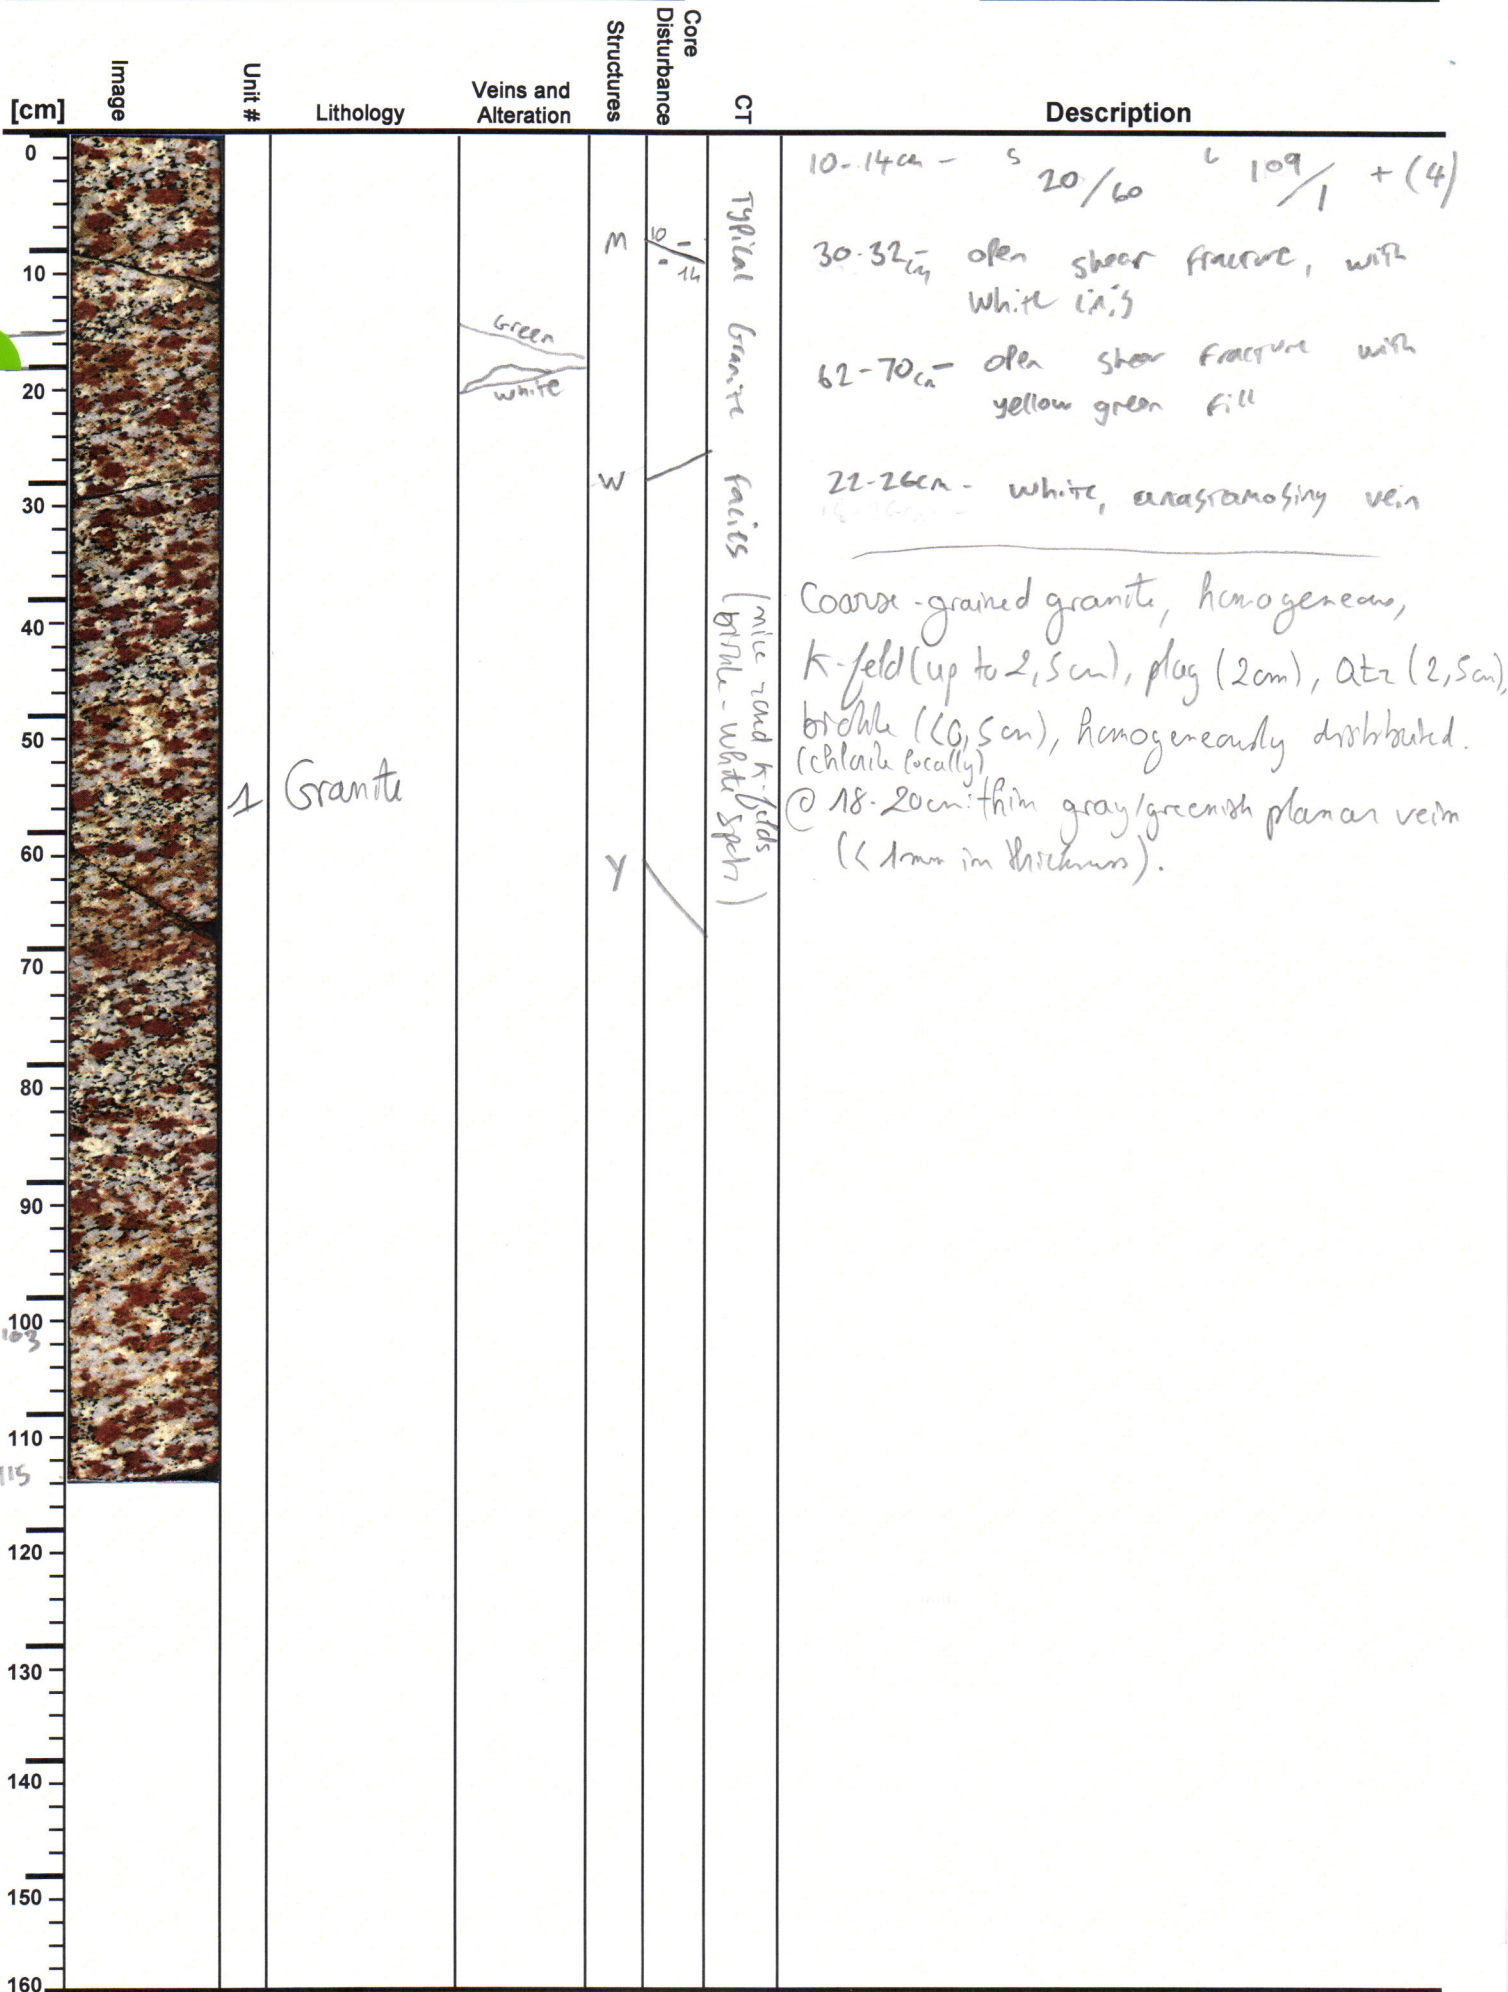 [cm]
Image
Unit #
Lithology
Veins and
Alteration
Structures
Core
Disturbance
CT
Description
0
10
20
30
40
50
60
70
80
90
100
103
110
115
120
130
140
150
160
1
Granite
Green
white
M
W
Y
10
14
Typical Granite facies (mice and K-felds
biotite - white spots)
10-14cm - S 20/60 L 109/1 + (4)
30-32cm - open shear fracture, with
white
62-70cm - open shear fracture with
yellow green fill
22-26cm - white, anastamosing vein
Coarse-grained granite, homogeneous,
K-feld (up to 2,5cm), plag (2cm), Qtz (2,5cm),
biotite (<0,5cm), homogeneously distributed.
(chlorite locally)
@ 18-20cm: thin gray/greenish planar vein
(<1mm in thickness).